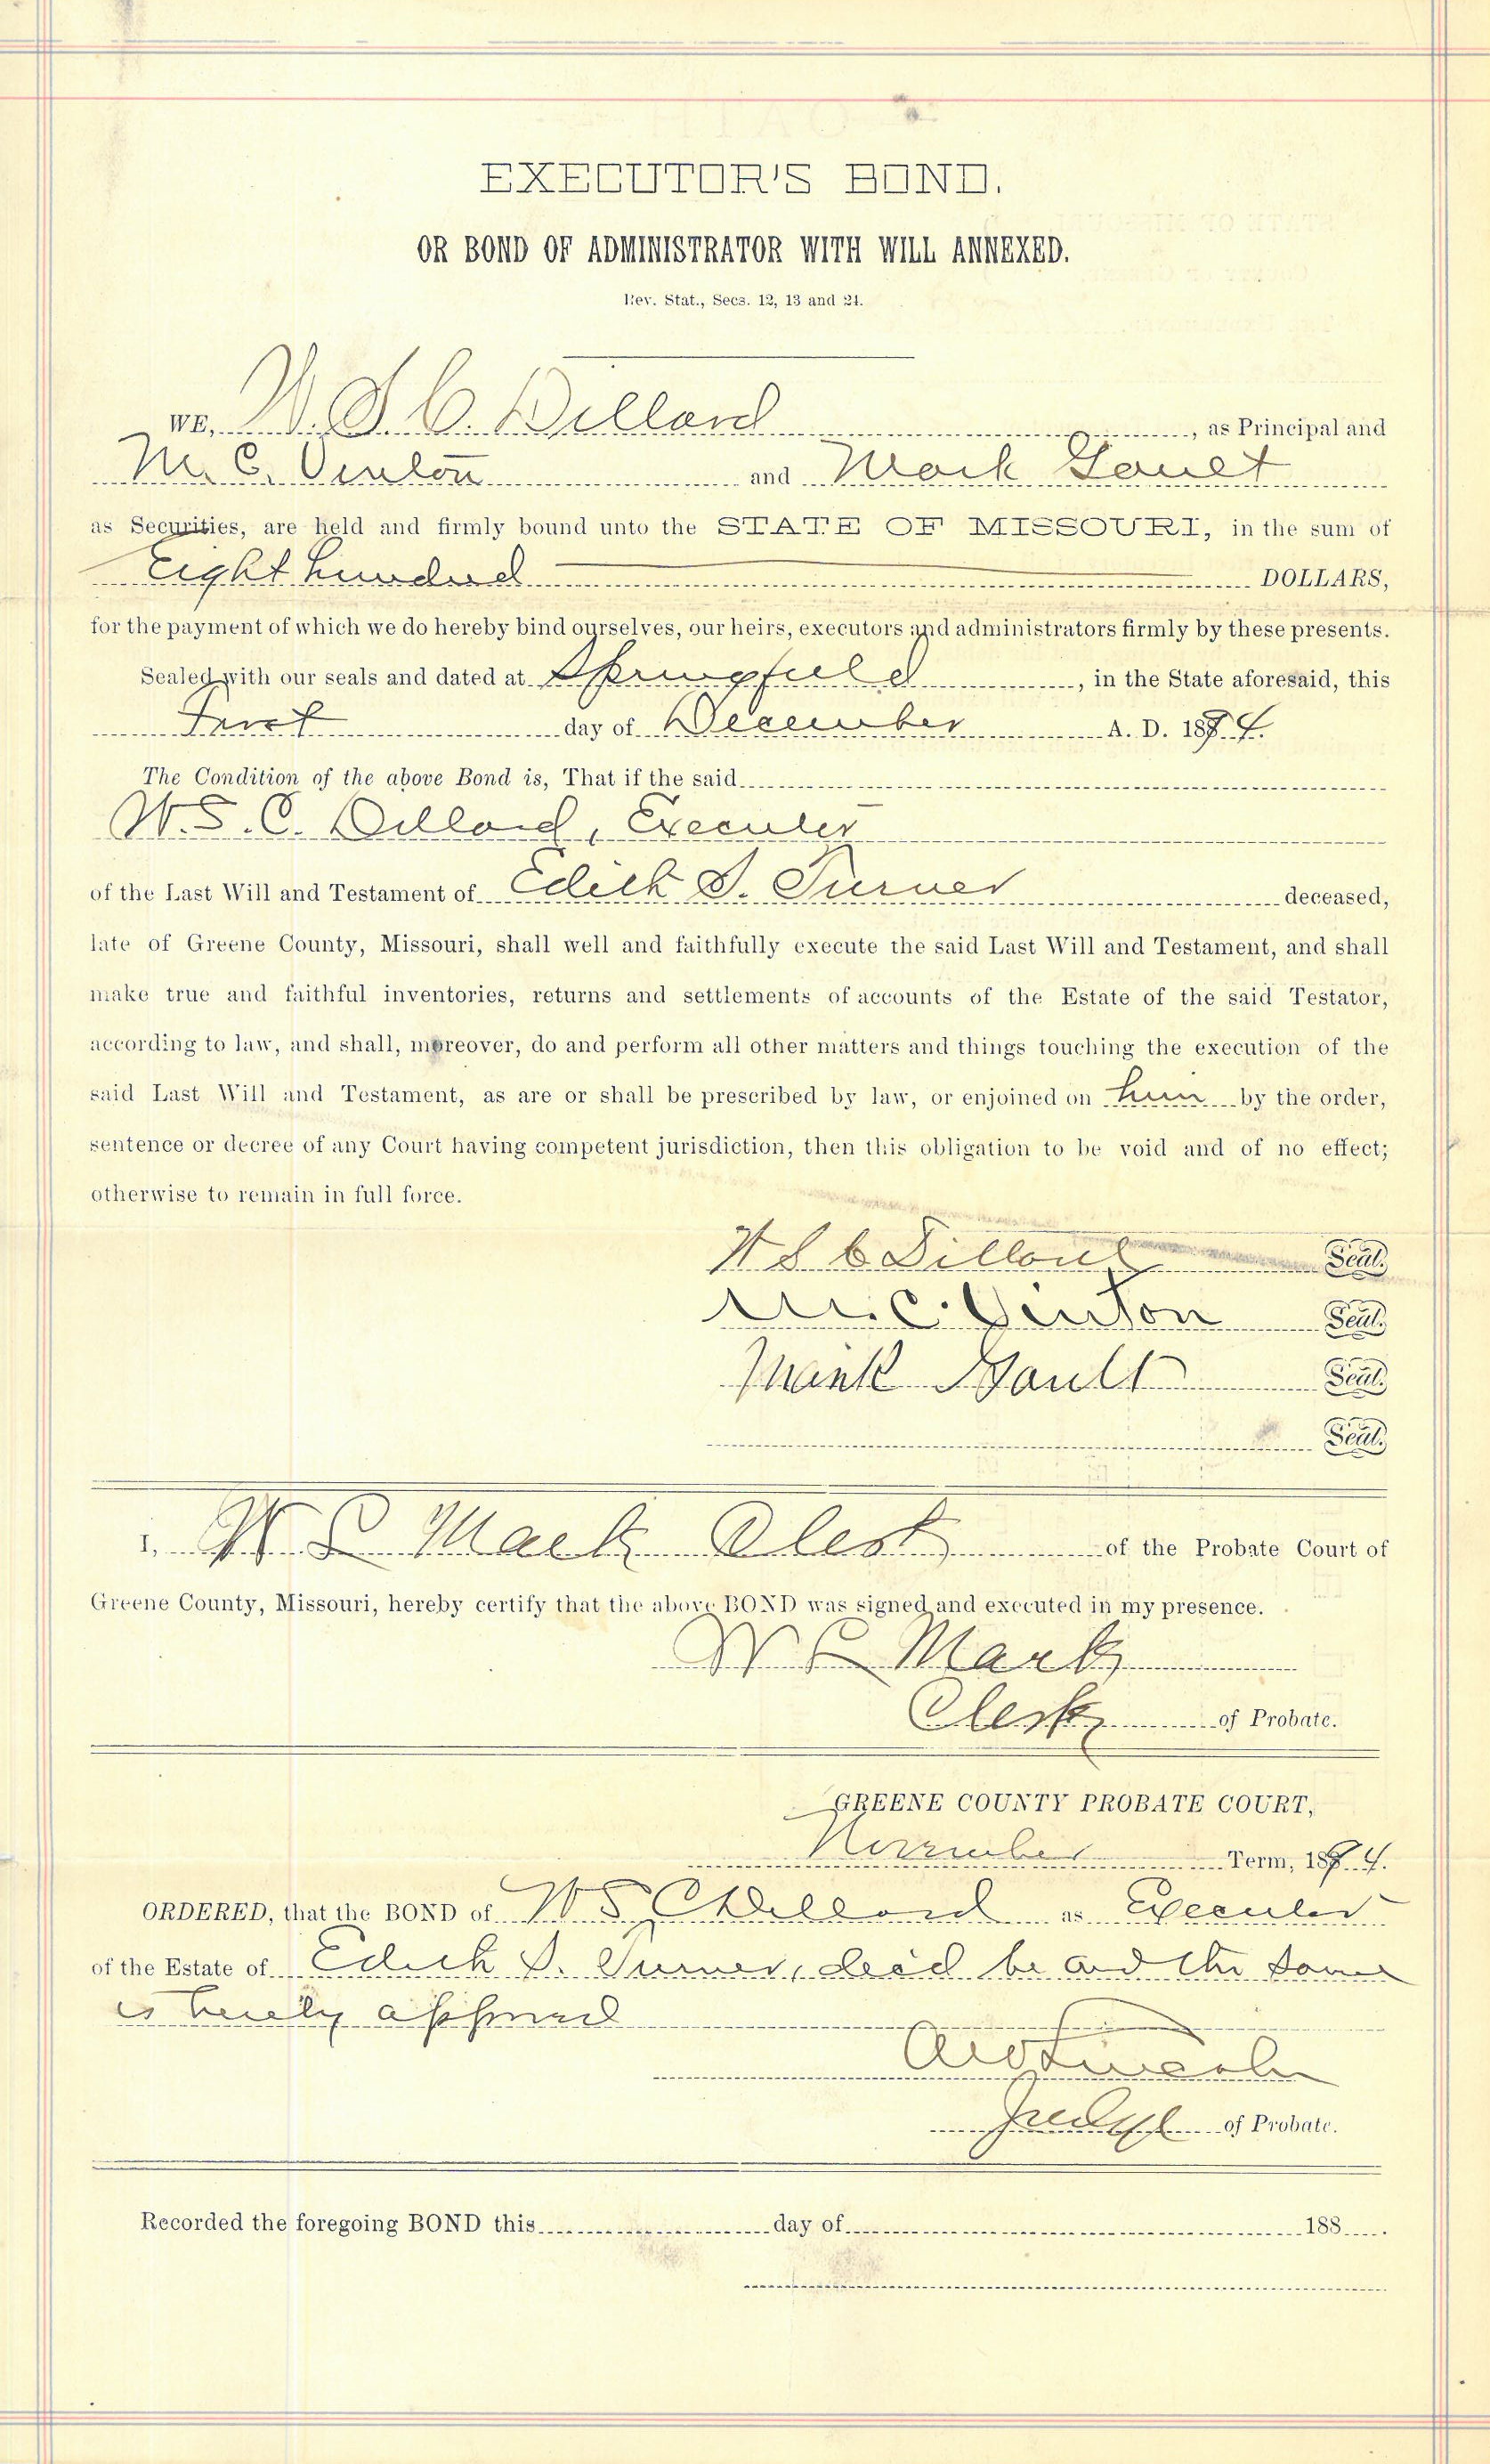 EXECUTOR'S BOND.
OR BOND OF ADMINISTRATOR WITH WILL ANNEXED.
Rev. Stat., Secs. 12, 13 and 24.
WE, W. S. C. Dillard, as Principal and
M. C. Vinton and Mark Gault
as Securities, are held and firmly bound unto the STATE OF MISSOURI, in the sum of
Eight hundred DOLLARS,
for the payment of which we do hereby bind ourselves, our heirs, executors and administrators firmly by these presents.
Sealed with our seals and dated at Springfield, in the State aforesaid, this
First day of December A. D. 1894.
The Condition of the above Bond is, That if the said
W. S. C. Dillard, Executor
of the Last Will and Testament of Edith S. Turner deceased,
late of Greene County, Missouri, shall well and faithfully execute the said Last Will and Testament, and shall
make true and faithful inventories, returns and settlements of accounts of the Estate of the said Testator,
according to law, and shall, moreover, do and perform all other matters and things touching the execution of the
said Last Will and Testament, as are or shall be prescribed by law, or enjoined on him by the order,
sentence or decree of any Court having competent jurisdiction, then this obligation to be void and of no effect;
otherwise to remain in full force.
W S C Dillard Seal.
M. C. Vinton Seal.
Mark Gault Seal.
Seal.
I, W L Mack Clerk of the Probate Court of
Greene County, Missouri, hereby certify that the above BOND was signed and executed in my presence.
W L Mack
Clerk of Probate.
GREENE COUNTY PROBATE COURT,
November Term, 1894.
ORDERED, that the BOND of W S C Dillard as Executor
of the Estate of Edith S. Turner, dec'd be and the same
is hereby approved
A W Lincoln
Judge of Probate.
Recorded the foregoing BOND this day of 188 .